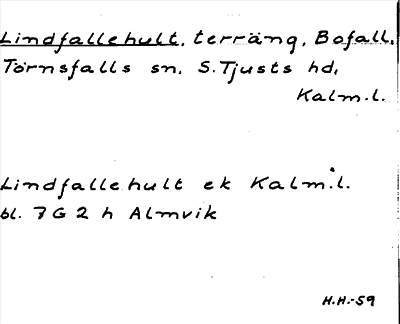 Lindfallehult, terräng, Bofall,
Törnsfalls sn, S. Tjusts hd,
Kalm.l.
Lindfallehult ek Kalm.l.
bl. 7 G 2 h Almvik
H.H.-59